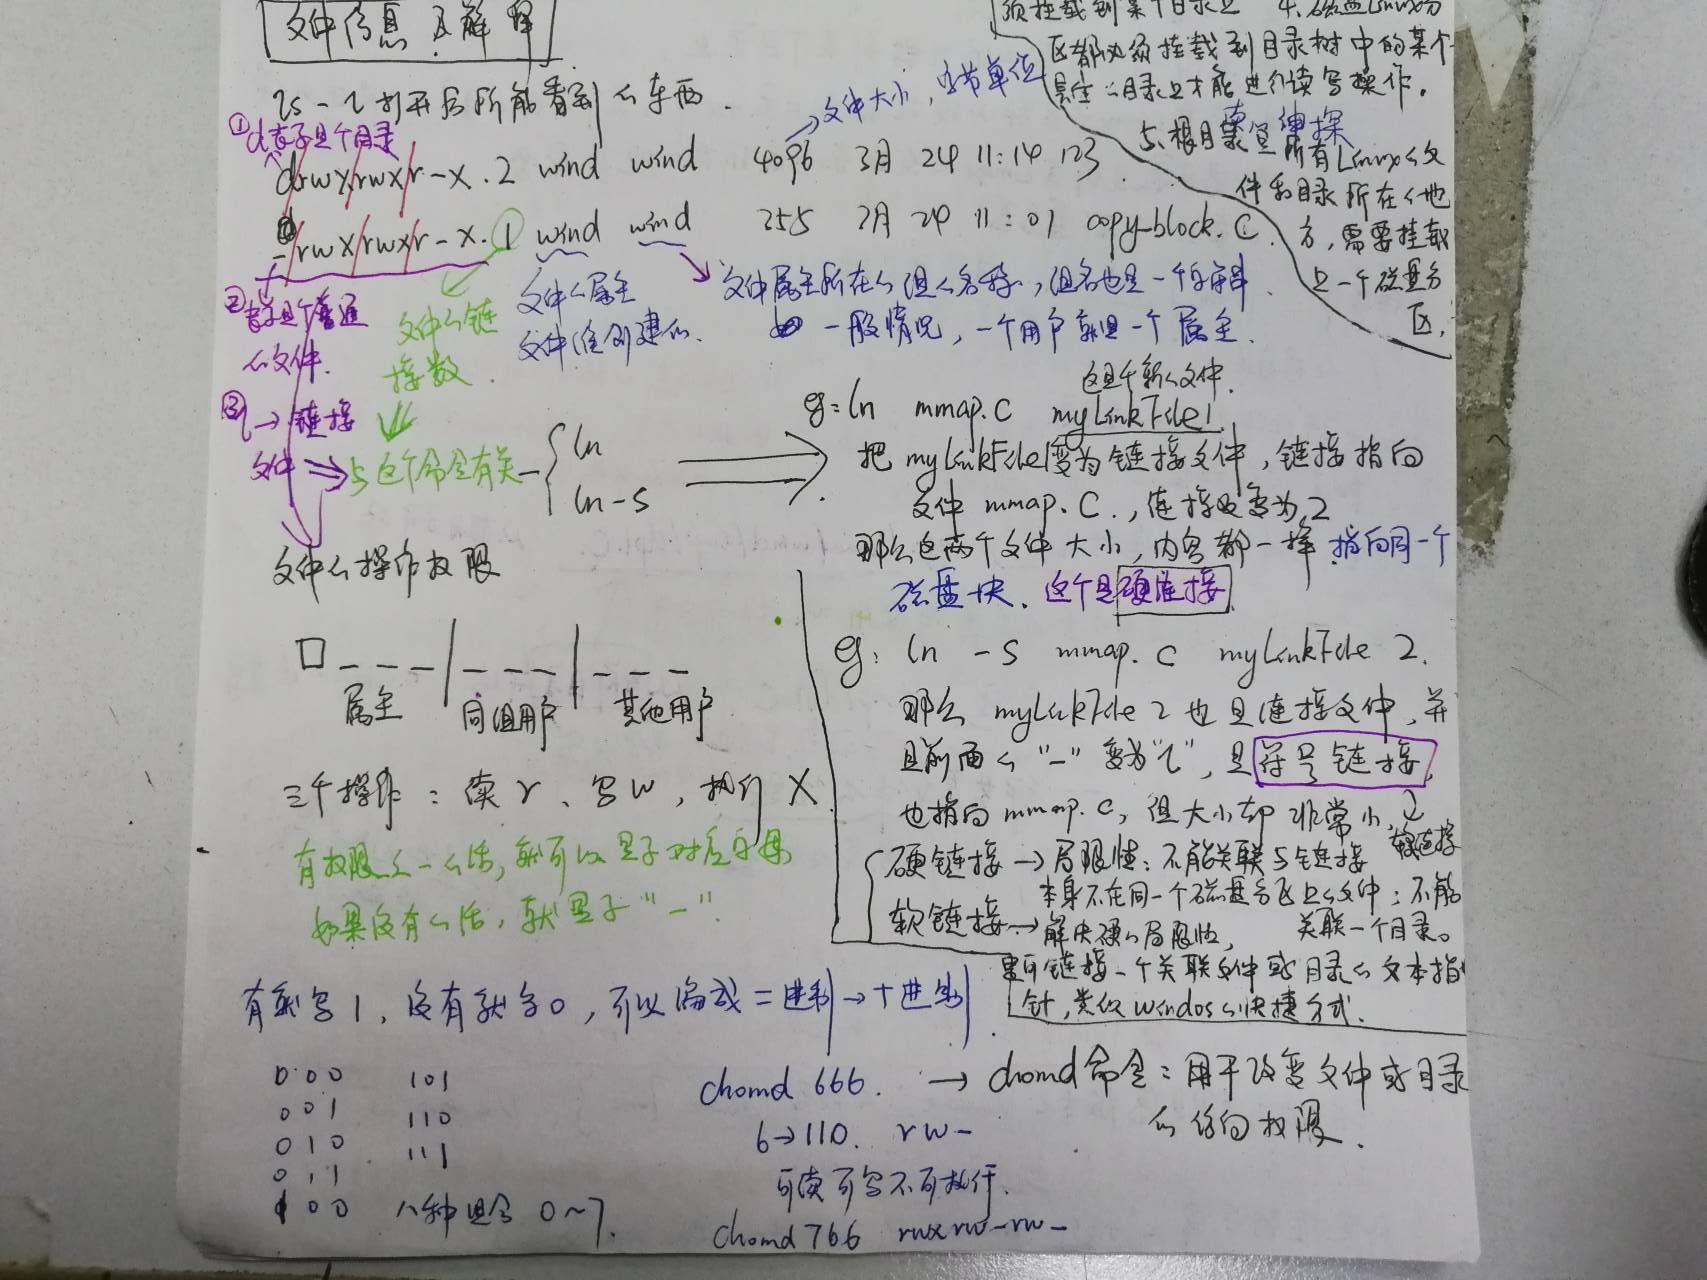 文件信息及解释
ls -l 打开后所能看到的东西.
→文件大小, 字节单位
① d表示是个目录
drwx/rwx/r-x. 2 wind wind 4096 3月 24 11:14 123
-/rwx/rwx/r-x. 1 wind wind 255 3月 24 11:01 copy-block.c.
② 表示是个普通的文件.
③ l→链接文件
文件的链接数.
文件的属主
文件谁创建的.
文件属主所在的组的名称, 组名也是一个字符串.
一般情况, 一个用户就是一个属主.
与这个命令有关 ln
ln-s
文件的操作权限
□ _ _ _ | _ _ _ | _ _ _
属主 同组用户 其他用户
三个操作: 读 r、写 w, 执行 X
有权限的话, 就可以显示对应字母
如果没有的话, 就显示"-".
有就写1, 没有就写0, 可以编成二进制→十进制
000 101
001 110
010 111
011
100 八种组合 0~7.
须挂载到某个目录上 4、磁盘Linux分
区都必须挂载到目录树中的某个
具体的目录上才能进行读写操作.
5、根目录是所有Linux的文
件和目录所在的地
方, 需要挂载
上一个磁盘分
区.
这是个新的文件.
eg: ln mmap.c myLinkFile1
把 myLinkFile1变为链接文件, 链接指向
文件 mmap.c., 连接数变为2
那么这两个文件大小, 内容都一样 指向同一个
磁盘块. 这个是硬连接
eg: ln -s mmap.c myLinkFile 2.
那么 myLinkFile 2 也是连接文件, 并
且前面的"-"变为"l", 是符号链接,
也指向 mmap.c, 但大小却非常小, 软连接
硬链接 → 局限性: 不能关联与链接
本身不在同一个磁盘分区上的文件; 不能
关联一个目录。
软链接 → 解决硬的局限性,
链接一个关联文件或目录的文本指
针, 类似 Windos的快捷方式.
chomd 666. → chomd命令: 用于改变文件或目录
的访问权限.
6→110. rw-
可读可写不可执行.
chomd 766 rwxrw-rw-